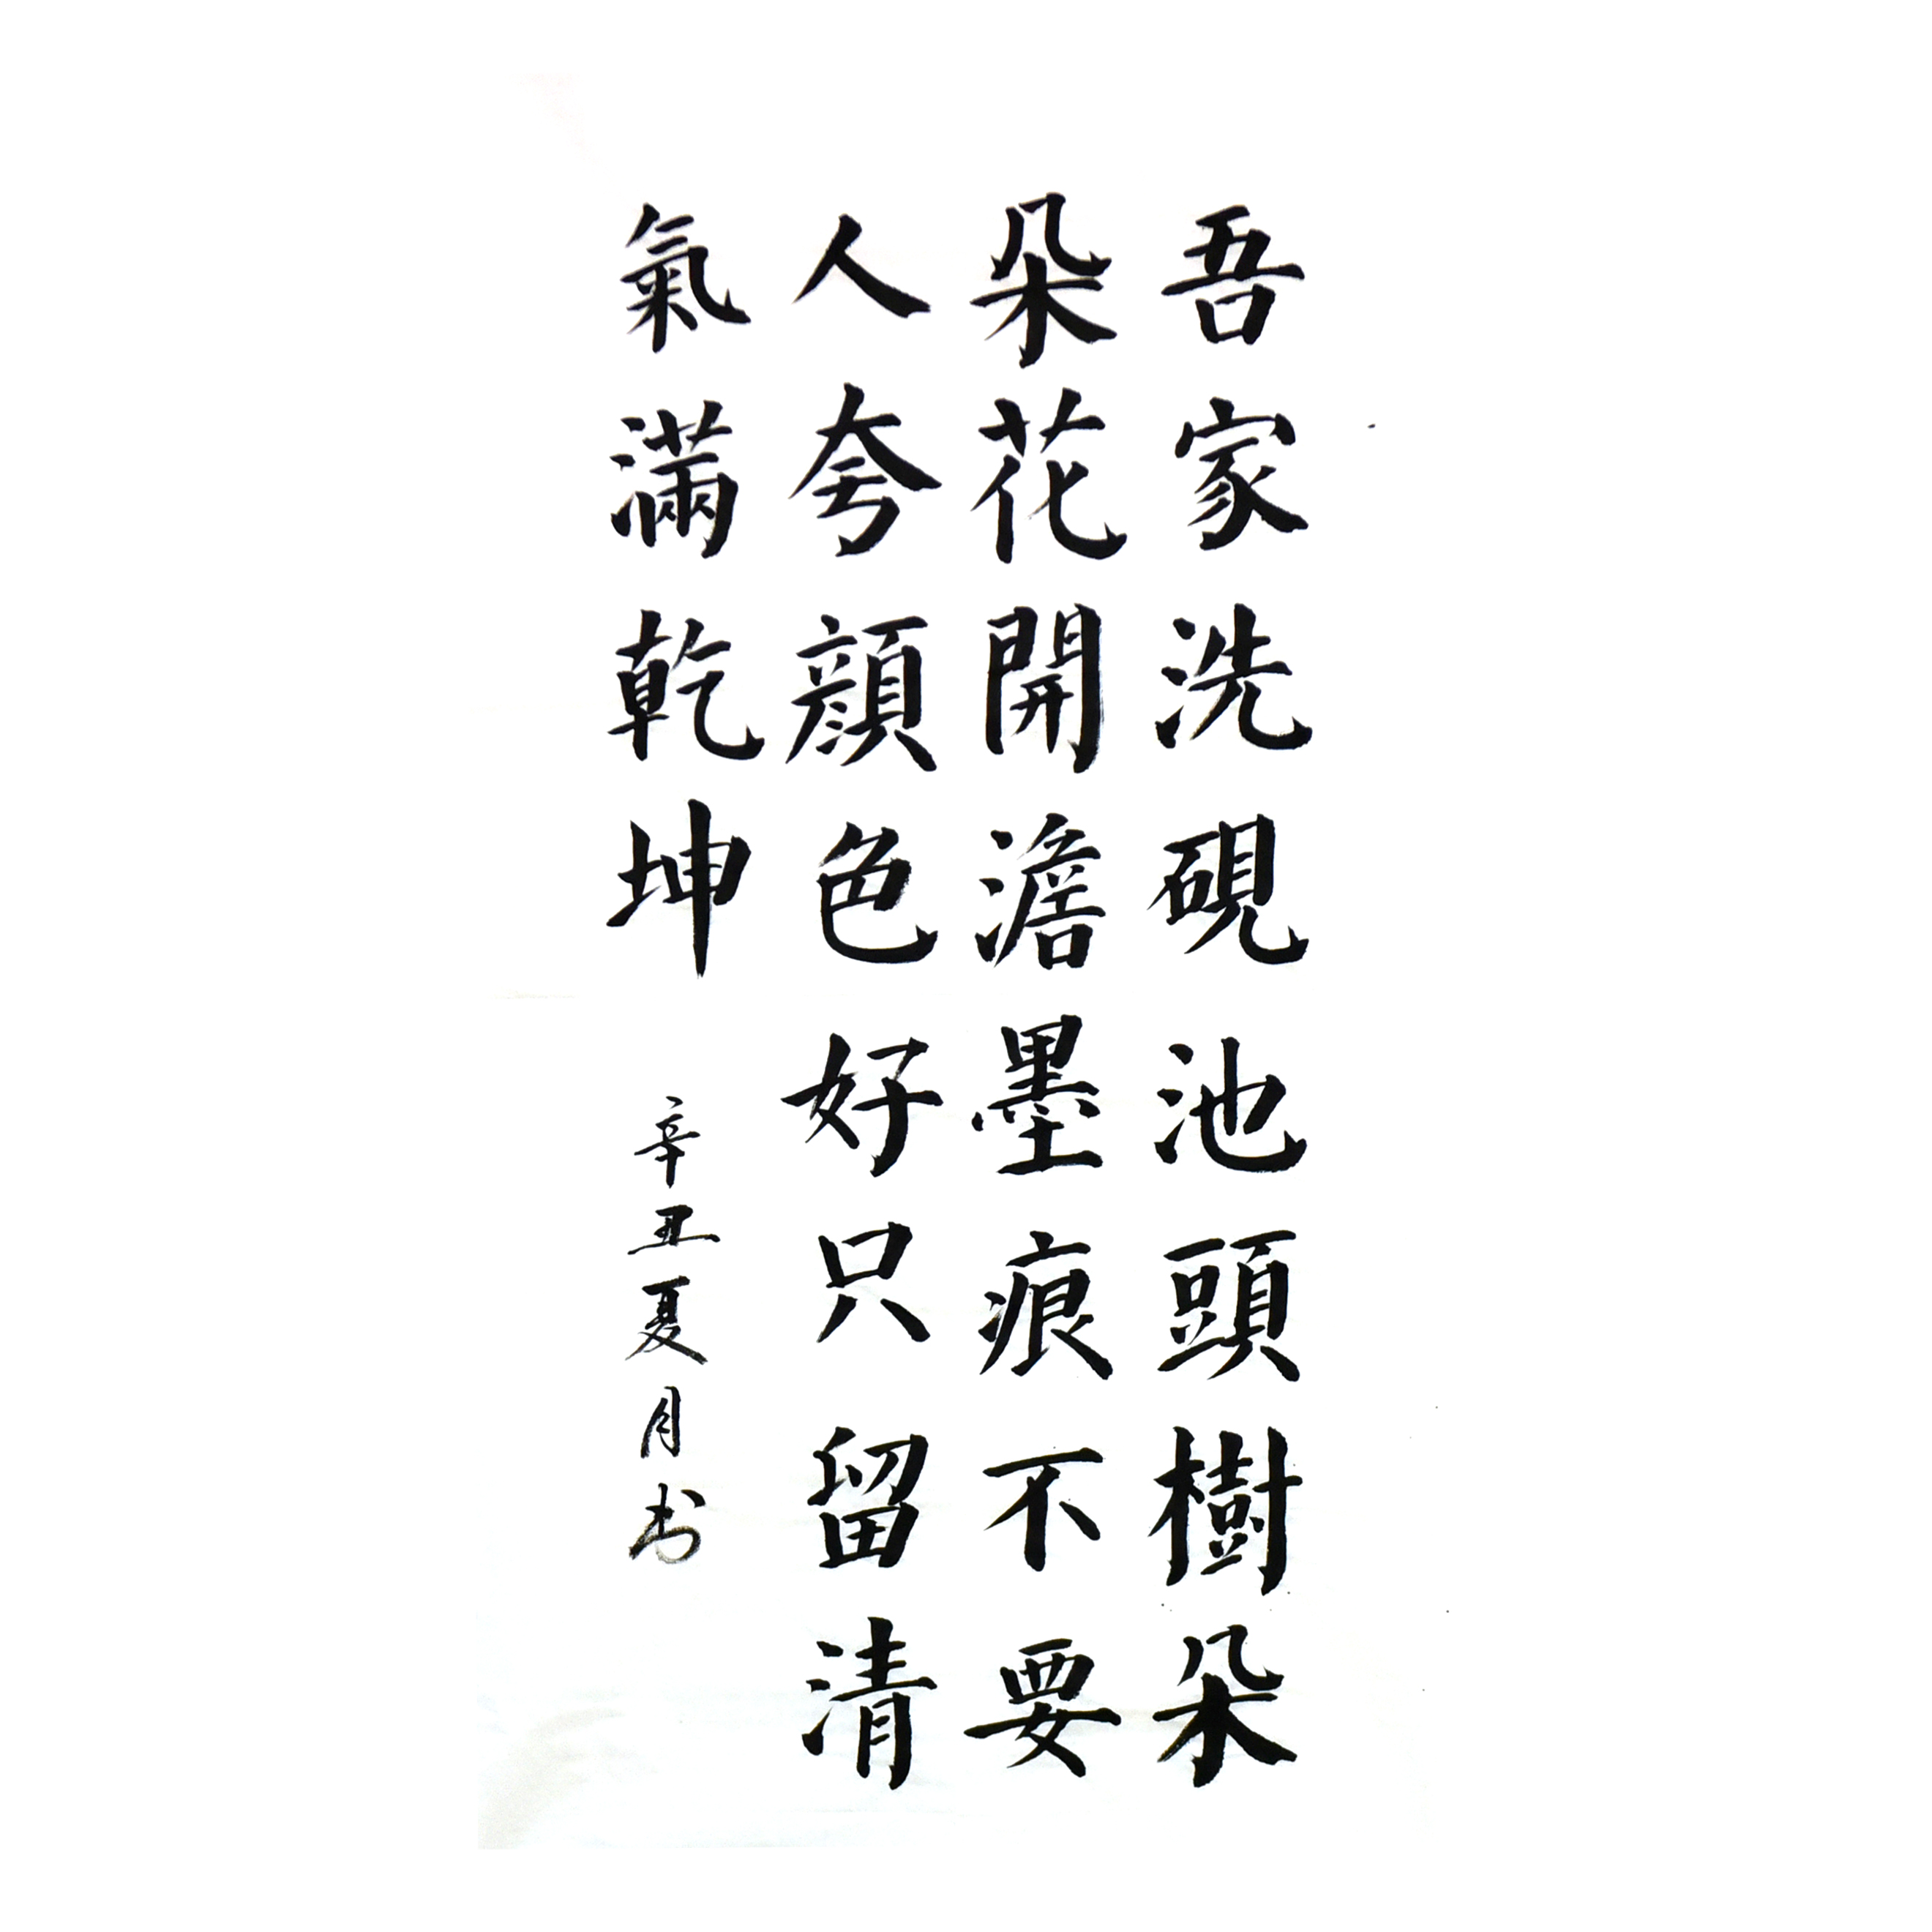 吾家洗硯池頭樹朵
朵花開澹墨痕不要
人夸顔色好只留清
氣滿乾坤
辛丑夏月书